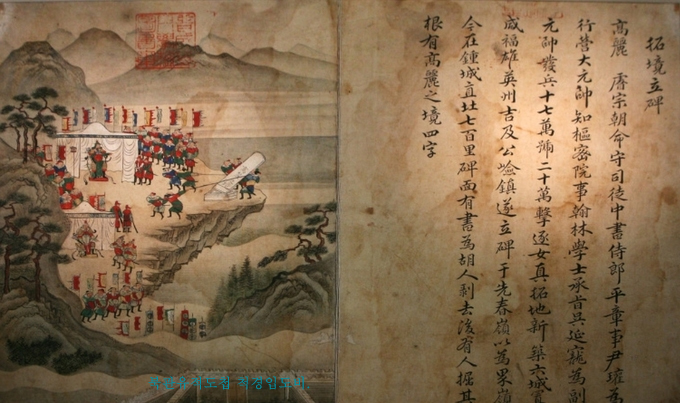 拓境立碑
高麗 睿宗朝命守司徒中書侍郎平章事尹瓘為
行營大元帥知樞密院事翰林學士承旨吳延寵為副
元帥發兵十七萬號二十萬擊逐女真拓地新築六城置
咸福雄英州吉及公嶮鎮遂立碑于先春嶺以為界嶺
今在鍾城直北七百里碑面有書為胡人剝去後有人掘其
根有高麗之境四字
북관유적도첩 척경입비도